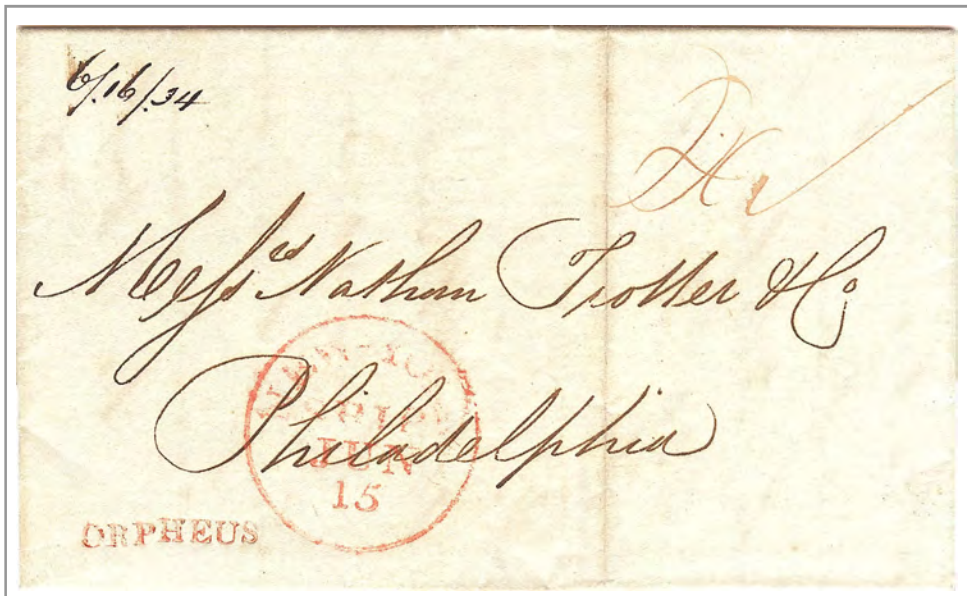 6/16/34
Mess.rs Nathan Trotter & Co
Philadelphia
NEW-YO
SHIP
JUN
15
ORPHEUS